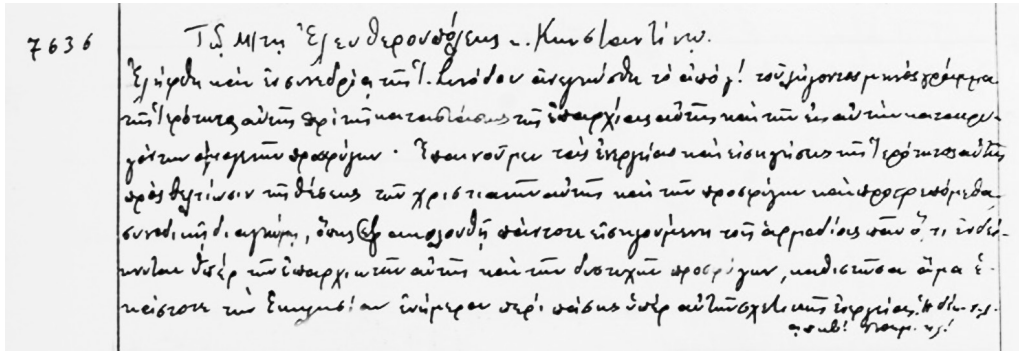 7636 Τῷ Μ/τῃ Ἐλευθερουπόλεως κ. Κωνσταντίνῳ.
Ἐλήφθη καὶ ἐν συνεδρίᾳ τῆς Ἱ. Συνόδου ἀνεγνώσθη τὸ ἀπὸ γ! τοῦ λήγοντος μηνὸς γράμμα
τῆς Ἱερότητος αὐτῆς περὶ τῆς καταστάσεως τῆς ἐπαρχίας αὐτῆς καὶ τῶν εἰς αὐτὴν καταφυ-
γόντων ὁμογενῶν προσφύγων. Ἐπαινοῦμεν τὰς ἐνεργείας καὶ εἰσηγήσεις τῆς Ἱερότητος αὐτῆς
πρὸς βελτίωσιν τῆς θέσεως τῶν χριστιανῶν αὐτῆς καὶ τῶν προσφύγων καὶ προτρεπόμεθα
συνοδικῇ διαγνώμῃ, ὅπως ἐξακολουθῇ πάντοτε εἰσηγουμένη τοῖς ἁρμοδίοις πᾶν ὅ,τι ἐνδεί-
κνυται ὑπὲρ τῶν ἐπαρχιωτῶν αὐτῆς καὶ τῶν δυστυχῶν προσφύγων, καθιστῶσα ἅμα ἑ-
κάστοτε τὴν Ἐκκλησίαν ἐνήμερον περὶ πάσης ὑπὲρ αὐτῶν σχετικῆς ἐνεργείας.